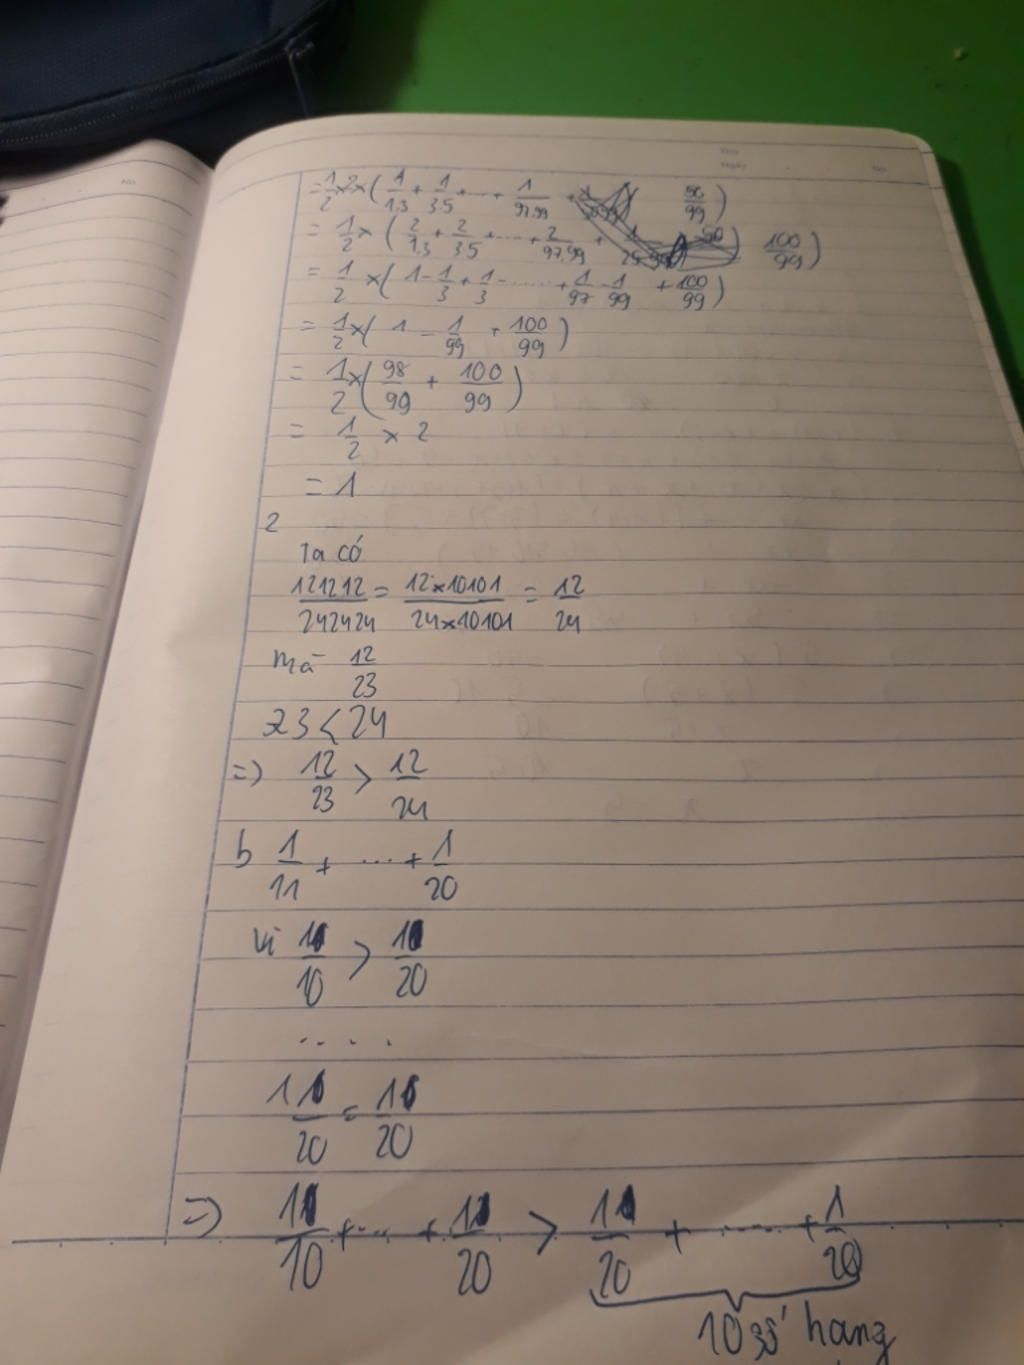 = 1/2 x 2 x ( 1/1.3 + 1/3.5 + ... + 1/97.99 + 50/99 )
= 1/2 x ( 2/1.3 + 2/3.5 + ... + 2/97.99 + 100/99 )
= 1/2 x ( 1 - 1/3 + 1/3 - ...... + 1/97 - 1/99 + 100/99 )
= 1/2 x ( 1 - 1/99 + 100/99 )
= 1/2 x ( 98/99 + 100/99 )
= 1/2 x 2
= 1
2
Ta có
121212/242424 = 12x10101/24x10101 = 12/24
mà 12/23
23 < 24
=) 12/23 > 12/24
b 1/11 + .... + 1/20
Vì 1/10 > 1/20
. . . .
1/20 = 1/20
=) 1/10 + ... + 1/20 > 1/20 + ..... + 1/20
10 số hang